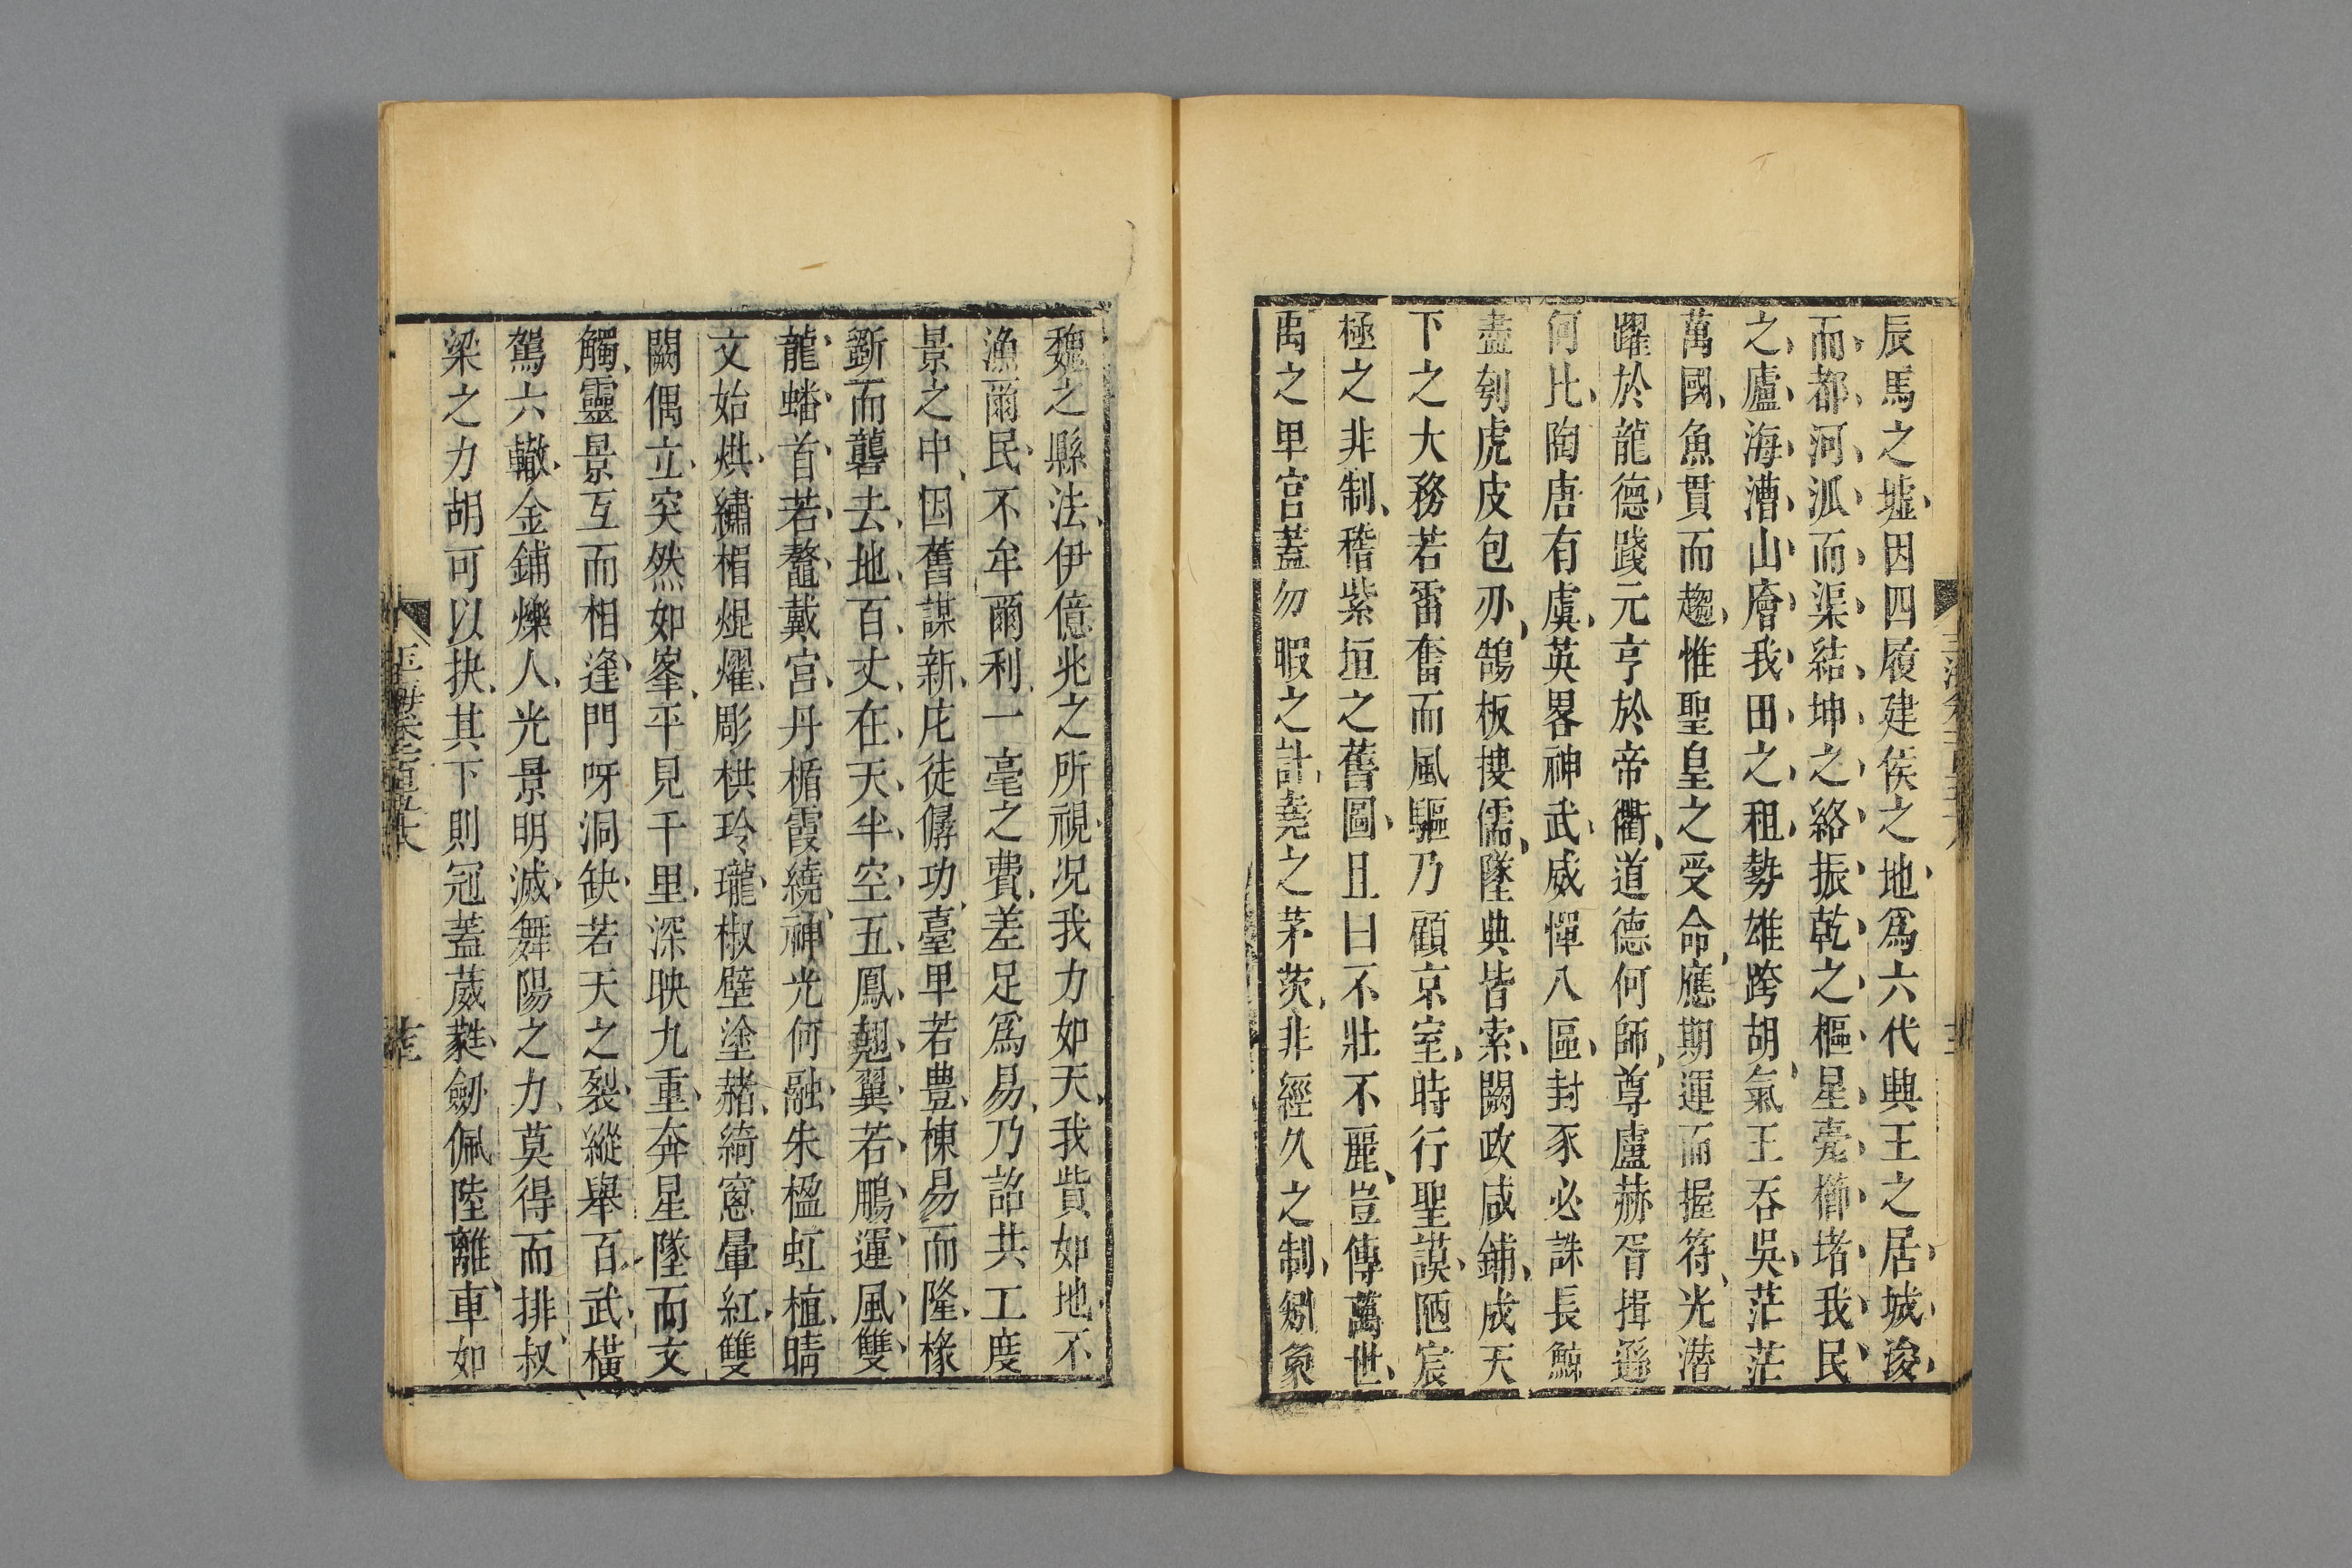 辰馬之墟因四履建侯之地爲六代典王之居城浚
而都河泒而渠結坤之絡振乾之樞星甍櫛堵我民
之廬海漕山廥我田之租勢雄跨胡氣王吞吳茫茫
萬國魚貫而趨惟聖皇之受命應期運而握符光潜
躍於龍德踐元亨於帝衢道德何師尊盧赫胥揖遜
何比陶唐有虞英畧神武威憚八區封豕必誅長鯨
盡刳虎皮包刅鵠板摟儒墜典皆索闕政咸鋪成天
下之大務若雷奮而風驅乃顧京室時行聖謨陋宸
極之非制稽紫垣之舊圖且曰不壯不麗豈傳萬世
禹之卑宮蓋勿暇之計堯之茅茨非經久之制剏象
魏之縣法伊億兆之所視况我力如天我貲如地不
漁爾民不牟爾利一毫之費差足爲易乃詔共工度
景之中因舊謀新庀徒僝功臺卑若豊棟易而隆椽
斵而礱去地百丈在天半空五鳳翹翼若鵬運風雙
龍蟠首若鼇戴宮丹楯霞繞神光何融朱楹虹植晴
文始烘繡楣焜燿彫栱玲瓏椒壁塗赭綺窻暈紅雙
闕偶立突然如峯平見千里深映九重奔星墜而交
觸靈景互而相逢門呀洞缺若天之裂縱舉百武橫
駕六轍金鋪爍人光景明滅舞陽之力莫得而排叔
梁之力胡可以抉其下則冠蓋葳蕤劒佩陸離車如